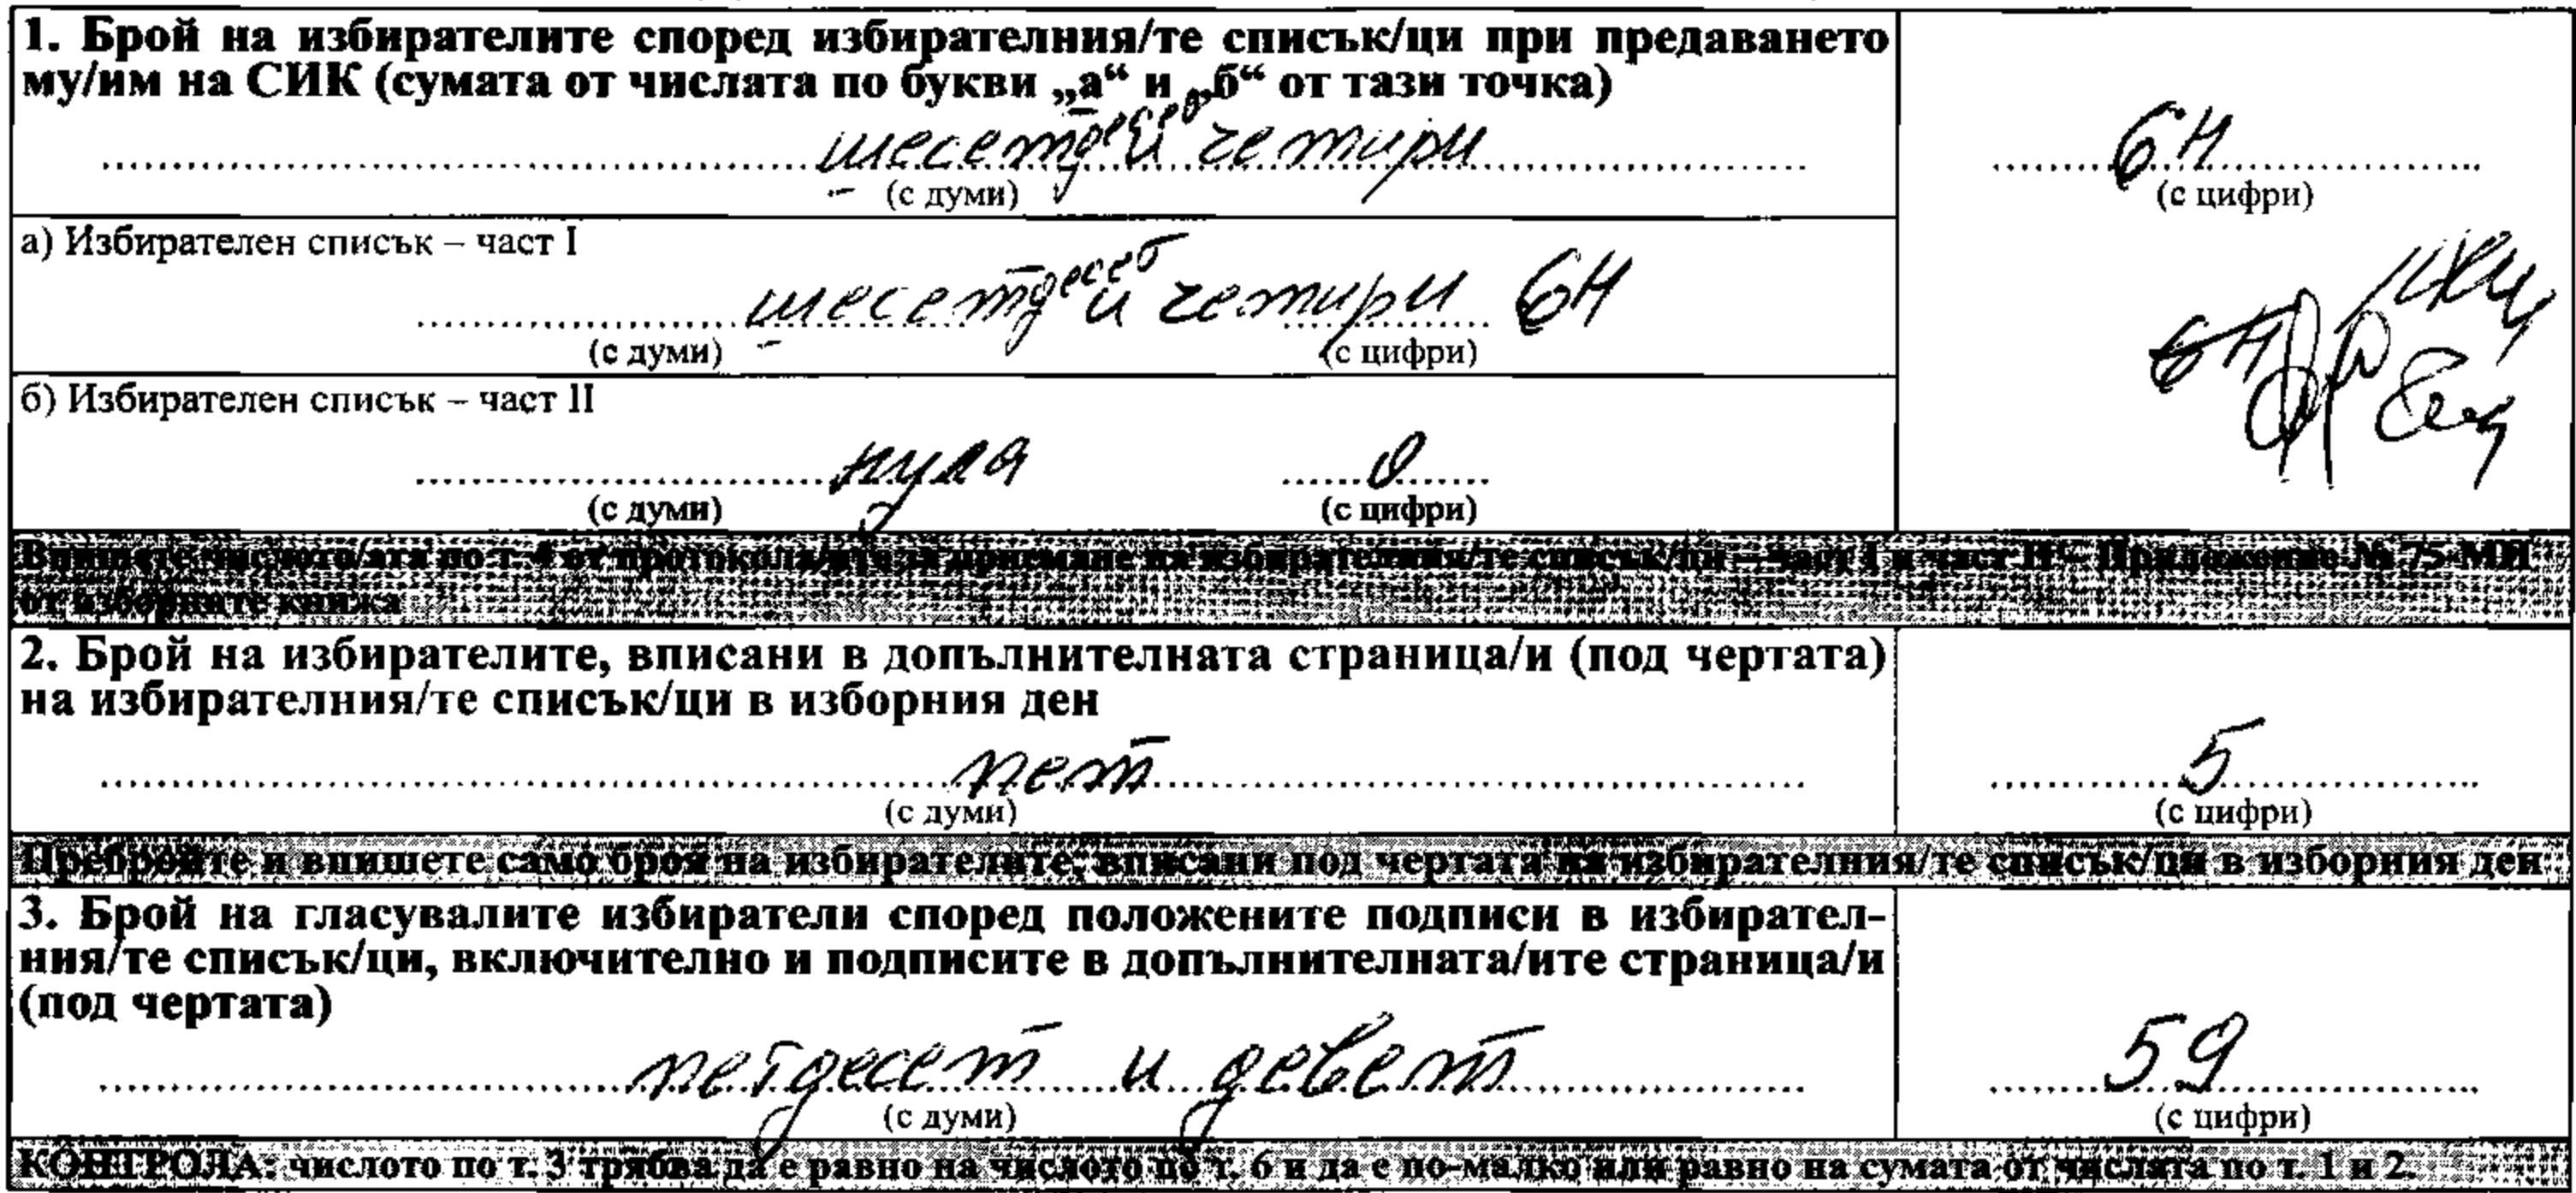 1. Брой на избирателите според избирателния/те списък/ци при предаването
му/им на СИК (сумата от числата по букви „а“ и „б“ от тази точка)
шесет и четири 64
(с думи) (с цифри)
а) Избирателен списък – част I
шесет и четири 64
(с думи) (с цифри)
64
б) Избирателен списък – част II
нула 0
(с думи) (с цифри)
Впишете числото/ата по т. 4 от протокола/ите за приемане на избирателния/те списък/ци – част I и част II – Приложение № 75-МИ
от изборните книжа
2. Брой на избирателите, вписани в допълнителната страница/и (под чертата)
на избирателния/те списък/ци в изборния ден
пет 5
(с думи) (с цифри)
Пребройте и впишете само броя на избирателите, вписани под чертата на избирателния/те списък/ци в изборния ден
3. Брой на гласувалите избиратели според положените подписи в избирател-
ния/те списък/ци, включително и подписите в допълнителната/ите страница/и
(под чертата)
петдесет и девет 59
(с думи) (с цифри)
КОНТРОЛА: числото по т. 3 трябва да е равно на числото по т. 6 и да е по-малко или равно на сумата от числата по т. 1 и 2.